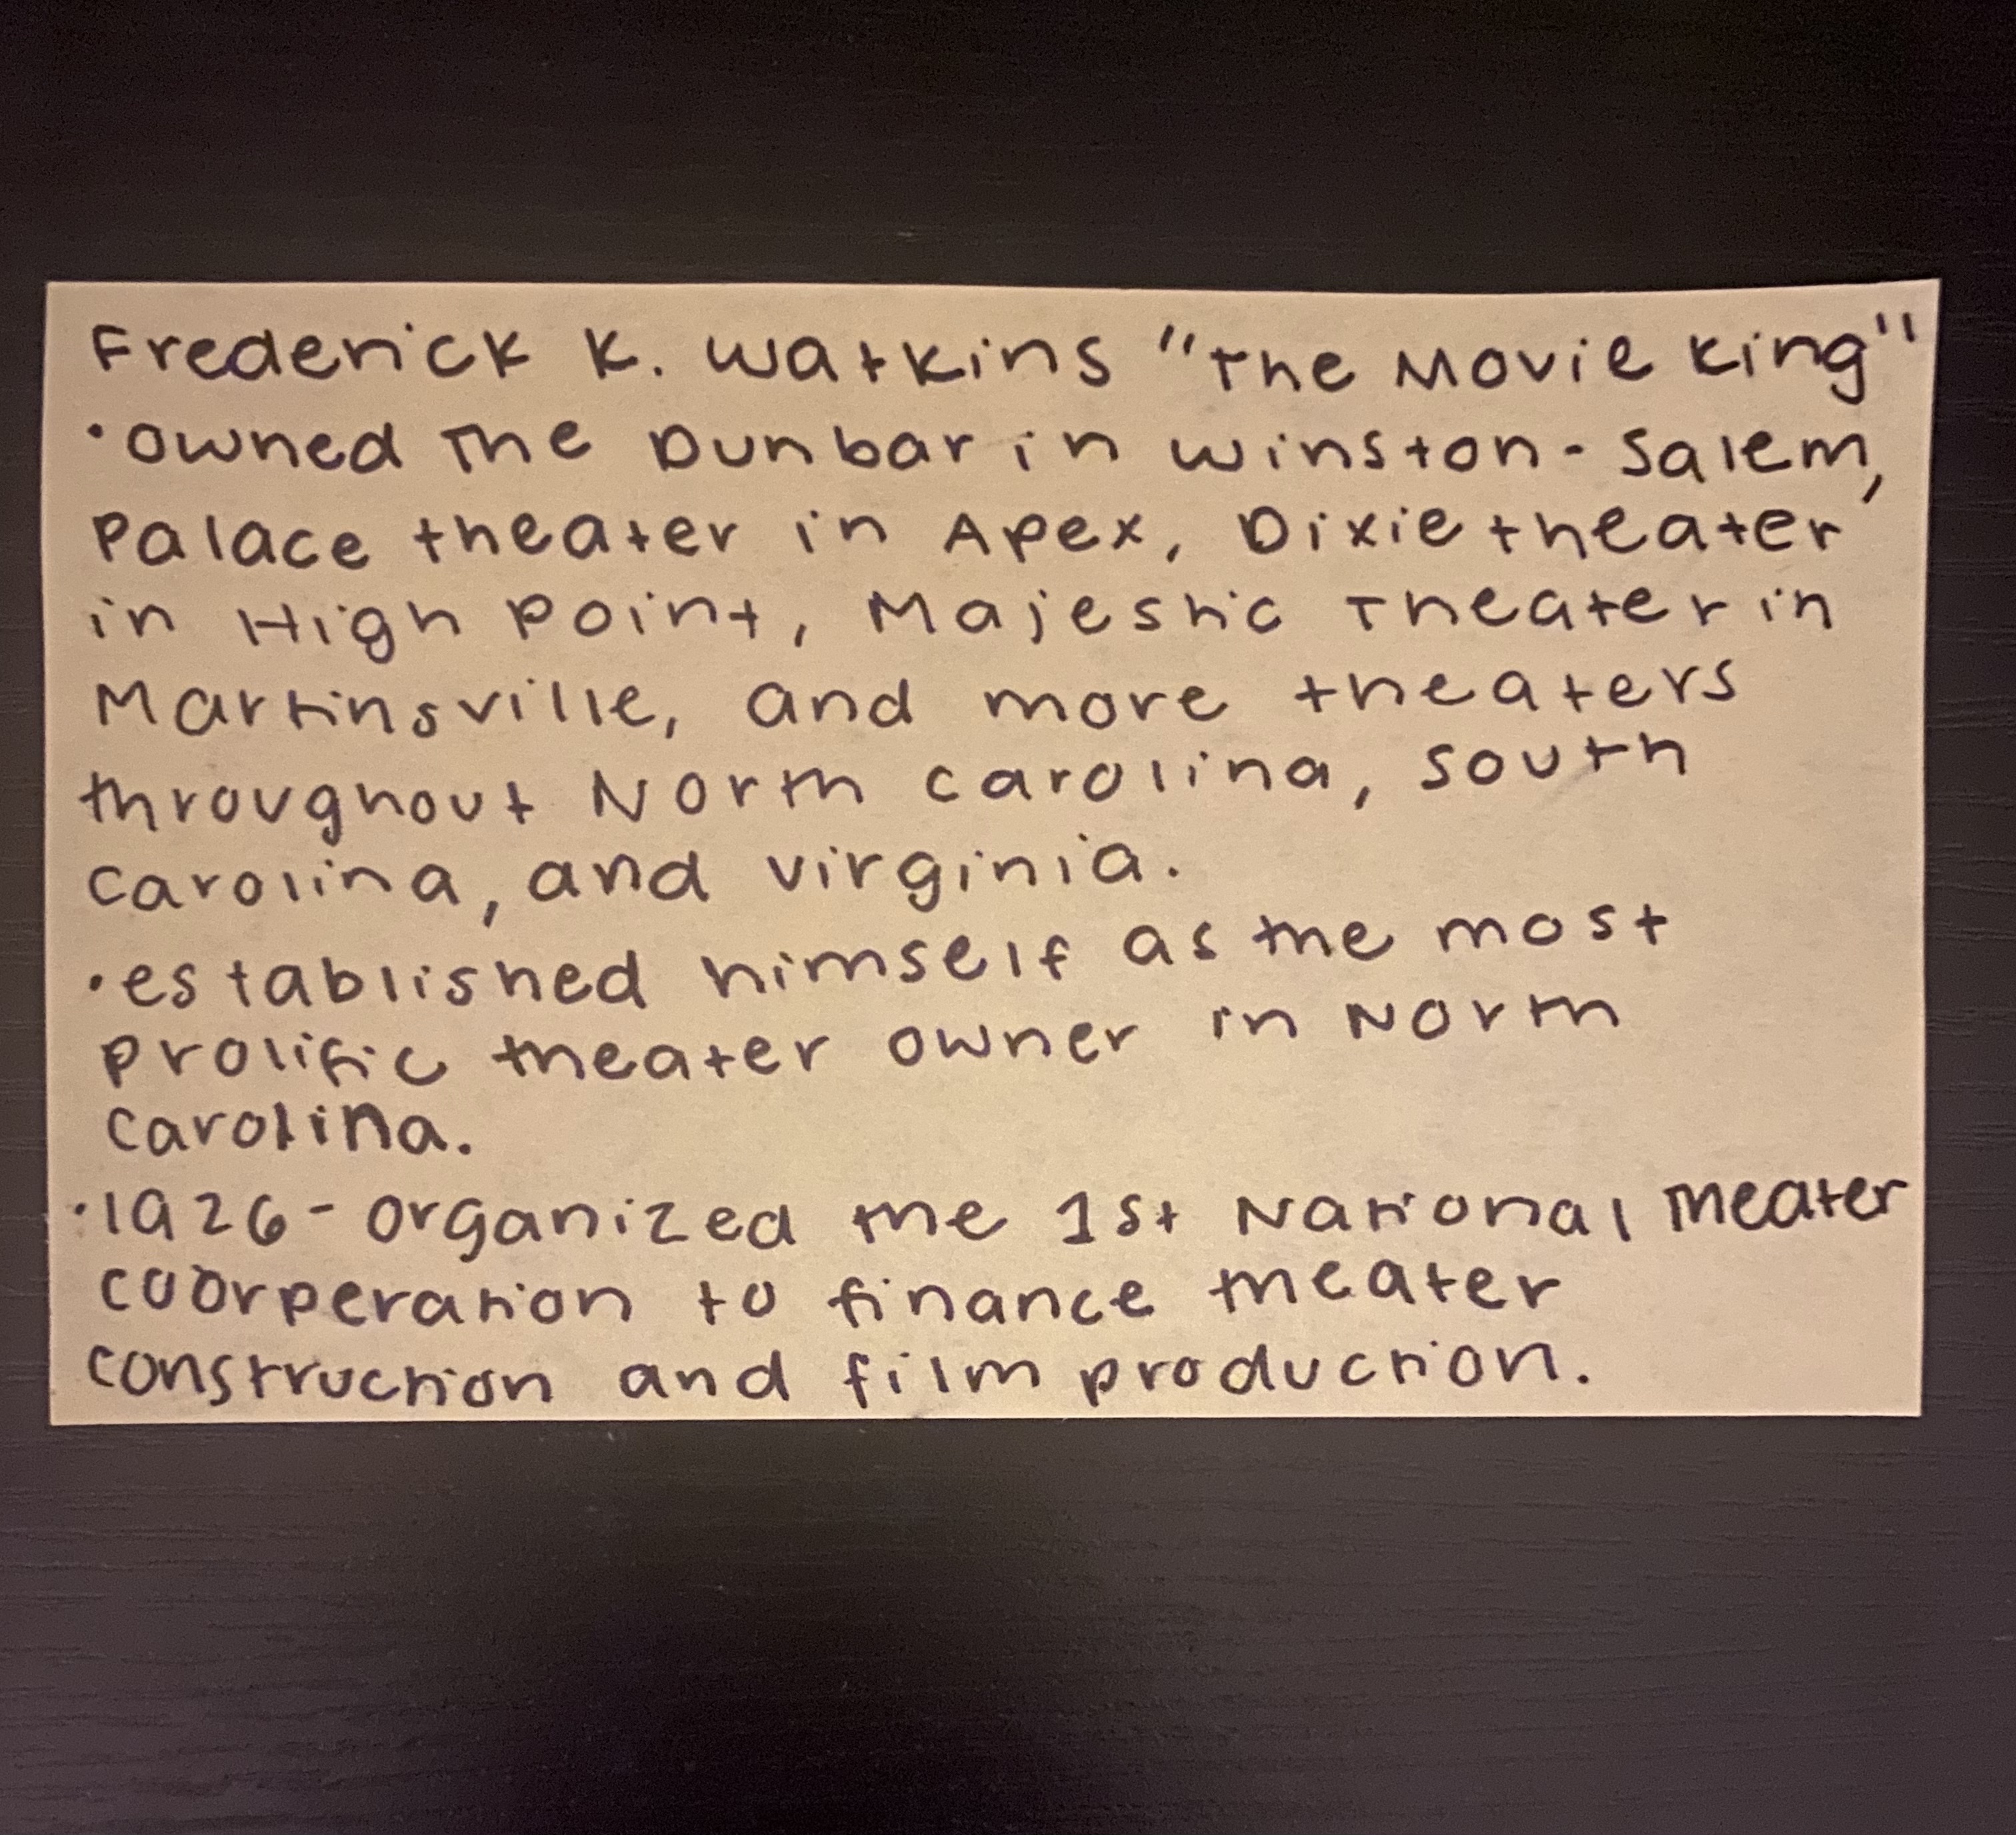 Frederick K. Watkins "The Movie King"
• owned The Dunbar in Winston-Salem,
Palace theater in Apex, Dixie theater
in High Point, Majestic Theater in
Martinsville, and more theaters
throughout North Carolina, South
Carolina, and Virginia.
• established himself as the most
prolific theater owner in North
Carolina.
• 1926 - organized the 1st National Theater
coorperation to finance theater
construction and film production.